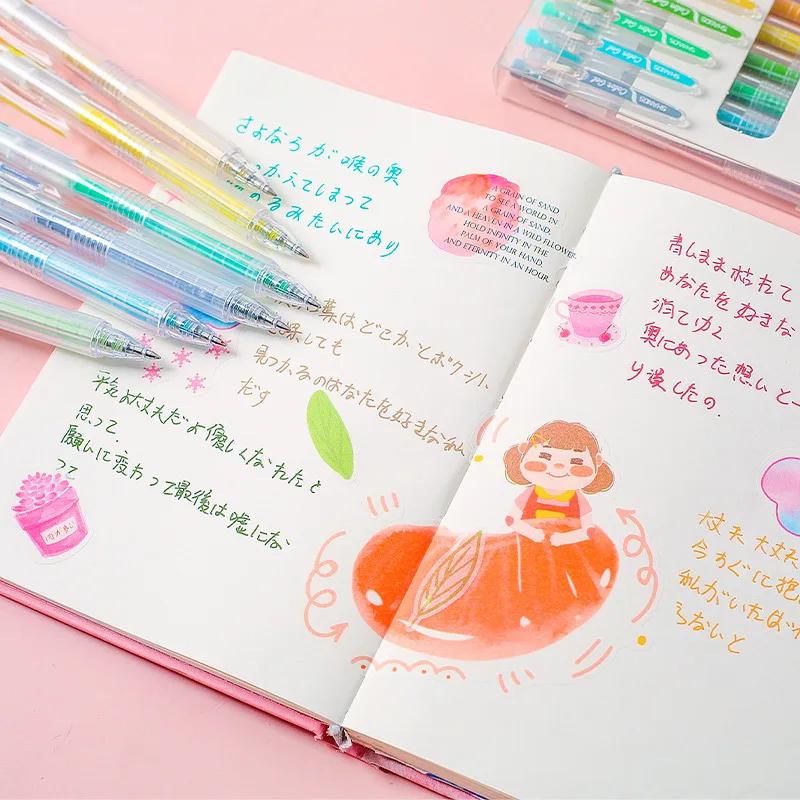 さよならが喉の奥
つかえてしまって
のるみたいにあり
A GRAIN OF SAND
TO SEE A WORLD IN
A GRAIN OF SAND,
AND A HEAVEN IN A WILD FLOWER
HOLD INFINITY IN THE
PALM OF YOUR HAND,
AND ETERNITY IN AN HOUR.
葉はどこかとポケット
しても
見つかるのはあなたを好きな私
だす
平気よ大丈夫だよ優しくなれたと
思って.
願いに変わって最後は嘘にな
って
肉が多い
青しまま枯れて
あなたを好きな
消てゆく
奥にあった想いと一
り潰したの.
大丈夫 大丈夫
今すぐに抱
私がいたば
らないと
Color Gel SHANDS
Color Gel SHANDS
Color Gel SHANDS
Color Gel SHANDS